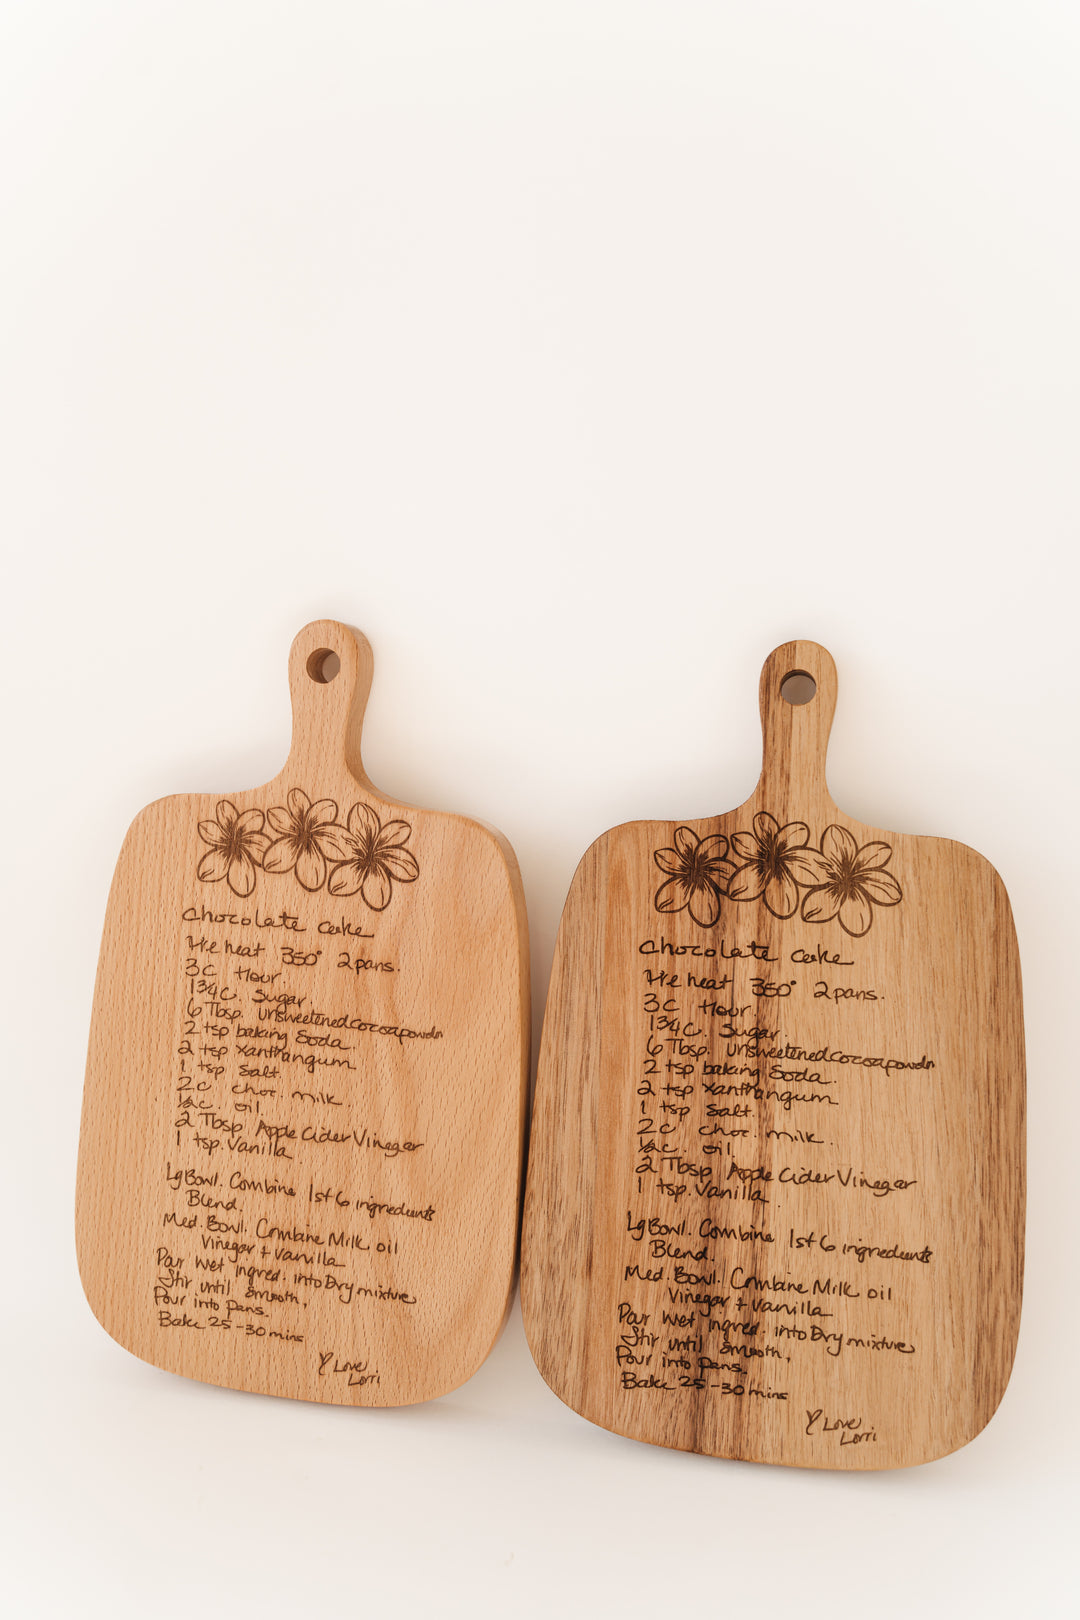 Chocolate cake
Pre heat 350° 2 pans.
3 C flour.
1 3/4 C. Sugar.
6 Tbsp. unsweetened cocoa powder
2 tsp baking Soda.
2 tsp xanthan gum
1 tsp Salt.
2 C choc. milk.
1/2 C. oil.
2 Tbsp Apple Cider Vinegar
1 tsp. Vanilla.
Lg Bowl. Combine 1st 6 ingredients
Blend.
Med. Bowl. Combine Milk oil
Vinegar + Vanilla
Pour wet ingred. into Dry mixture
Stir until smooth.
Pour into pans.
Bake 25-30 mins
♡ Love
Lorri
Chocolate cake
Pre heat 350° 2 pans.
3 C flour.
1 3/4 C. Sugar.
6 Tbsp. unsweetened cocoa powder
2 tsp baking Soda.
2 tsp xanthan gum
1 tsp Salt.
2 C choc. milk.
1/2 C. oil.
2 Tbsp Apple Cider Vinegar
1 tsp. Vanilla.
Lg Bowl. Combine 1st 6 ingredients
Blend.
Med. Bowl. Combine Milk oil
Vinegar + Vanilla
Pour wet ingred. into Dry mixture
Stir until smooth.
Pour into pans.
Bake 25-30 mins
♡ Love
Lorri